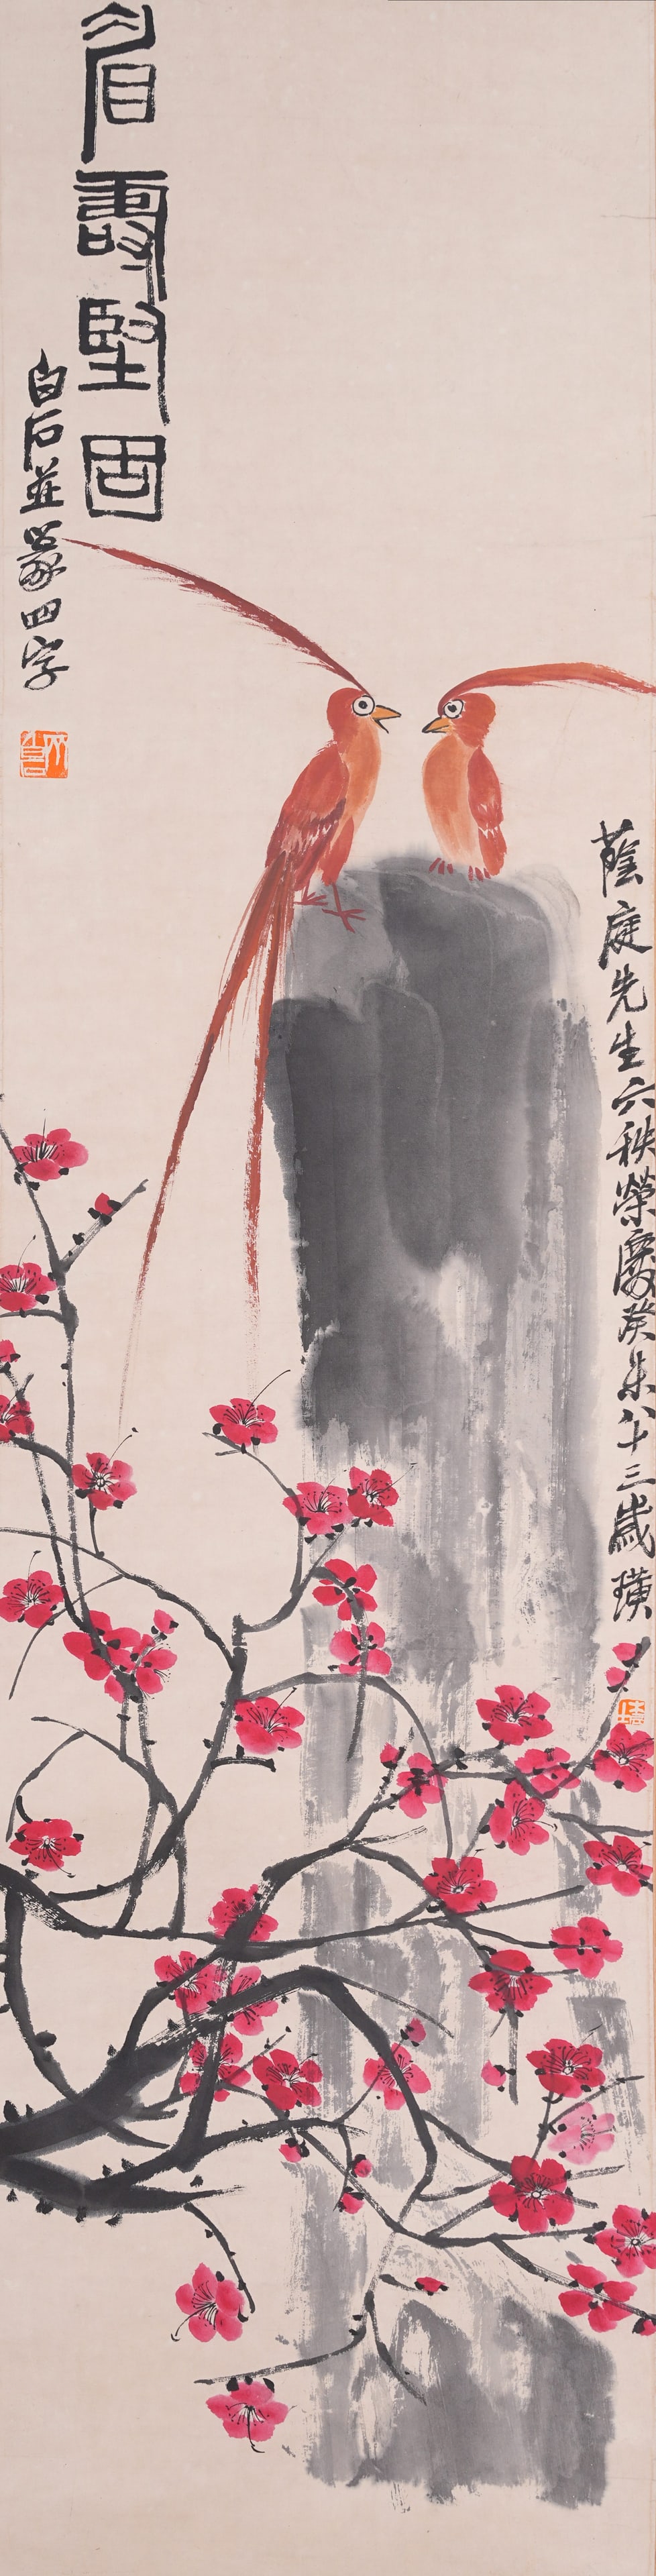 眉壽堅固
白石並篆四字
蔭庭先生六秩榮慶癸未八十三歲璜